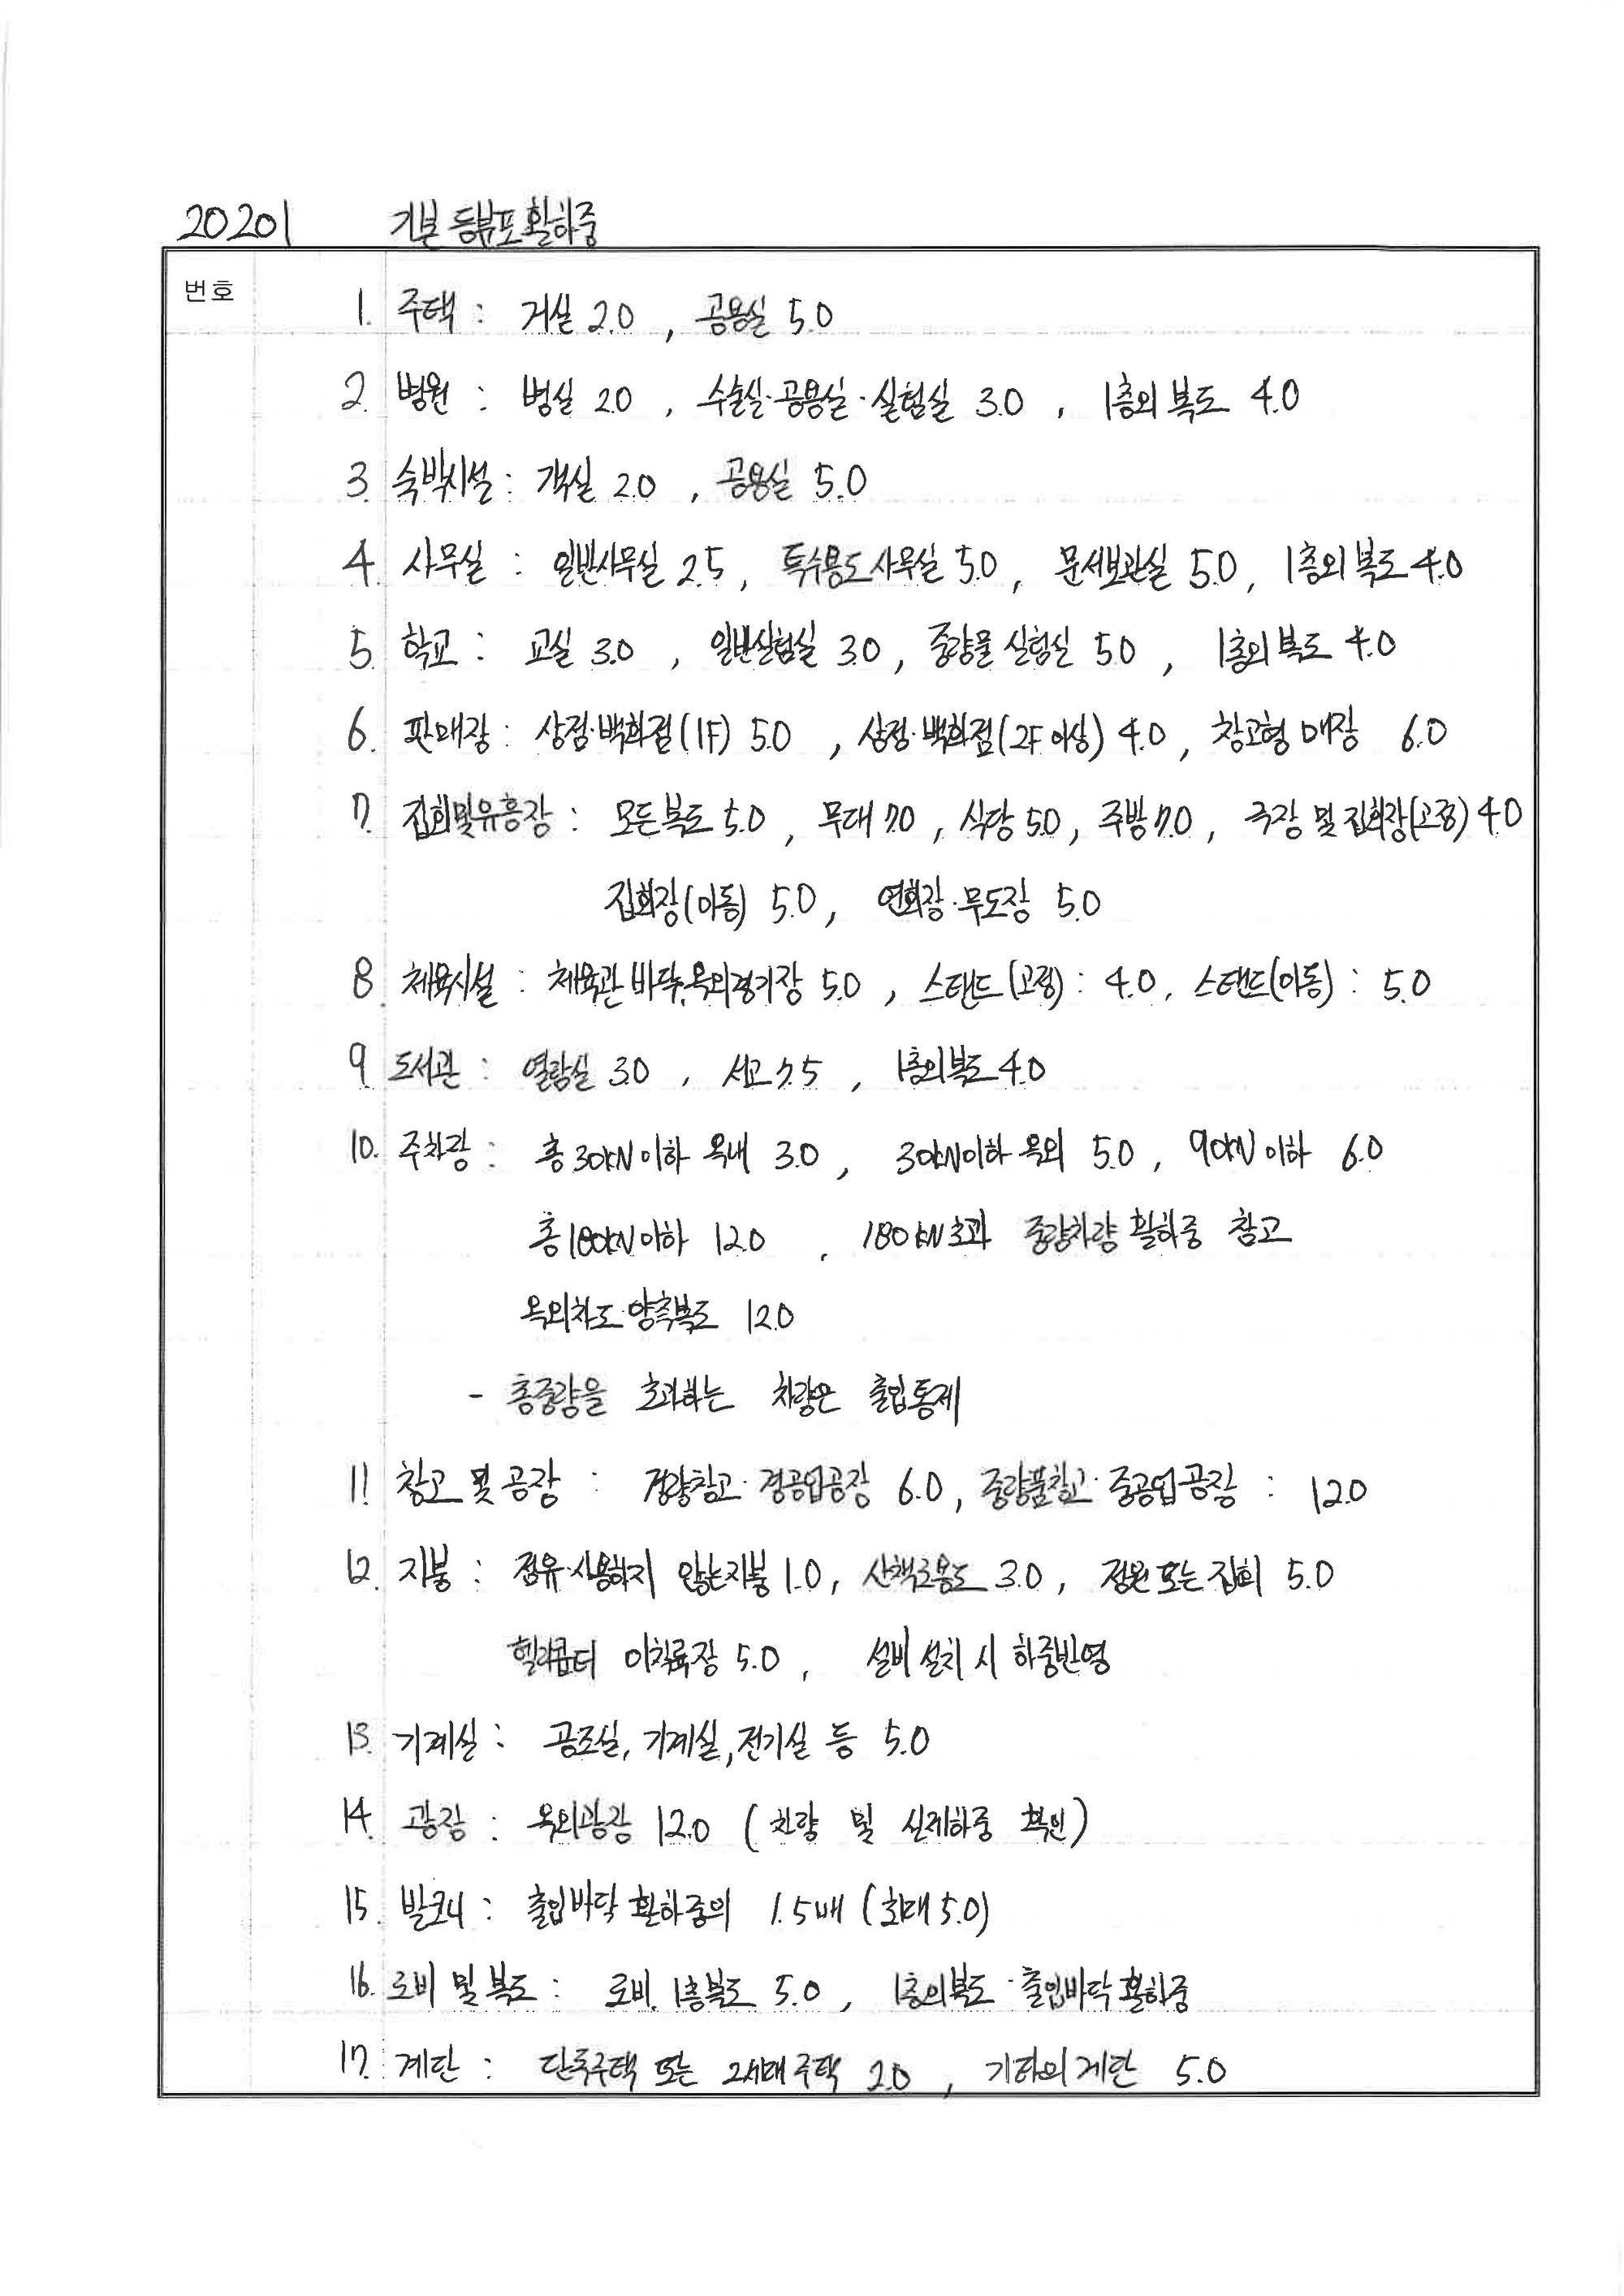 20201 기본 등분포활하중
번호
1. 주택 : 거실 2.0 , 공용실 5.0
2. 병원 : 병실 2.0 , 수술실·공용실·실험실 3.0 , 1층외 복도 4.0
3. 숙박시설 : 객실 2.0 , 공용실 5.0
4. 사무실 : 일반사무실 2.5 , 특수용도사무실 5.0 , 문서보관실 5.0 , 1층외 복도 4.0
5. 학교 : 교실 3.0 , 일반실험실 3.0 , 중량물 실험실 5.0 , 1층외 복도 4.0
6. 판매장 : 상점·백화점(1F) 5.0 , 상점·백화점(2F 이상) 4.0 , 창고형 매장 6.0
7. 집회및유흥장 : 모든복도 5.0 , 무대 7.0 , 식당 5.0 , 주방 7.0 , 극장 및 집회장(고정) 4.0
집회장(이동) 5.0 , 연회장·무도장 5.0
8. 체육시설 : 체육관 바닥,옥외경기장 5.0 , 스탠드(고정) : 4.0 , 스탠드(이동) : 5.0
9. 도서관 : 열람실 3.0 , 서고 7.5 , 1층외복도 4.0
10. 주차장 : 총 30kN 이하 옥내 3.0 , 30kN이하 옥외 5.0 , 90kN 이하 6.0
총 180kN 이하 12.0 , 180kN초과 중량차량 활하중 참고
옥외차도·양측복도 12.0
- 총중량을 초과하는 차량은 출입통제
11. 창고 및 공장 : 경량창고·경공업공장 6.0 , 중량품창고·중공업공장 : 12.0
12. 지붕 : 점유·사용하지 않는지붕 1.0 , 산책로용도 3.0 , 정원 또는 집회 5.0
헬리콥터 이착륙장 5.0 , 설비 설치 시 하중반영
13. 기계실 : 공조실, 기계실, 전기실 등 5.0
14. 광장 : 옥외광장 12.0 ( 차량 및 실제하중 확인 )
15. 발코니 : 출입바닥 활하중의 1.5배 ( 최대 5.0 )
16. 로비 및 복도 : 로비, 1층복도 5.0 , 1층외복도·출입바닥 활하중
17. 계단 : 단독주택 또는 2세대 주택 2.0 , 기타의 계단 5.0